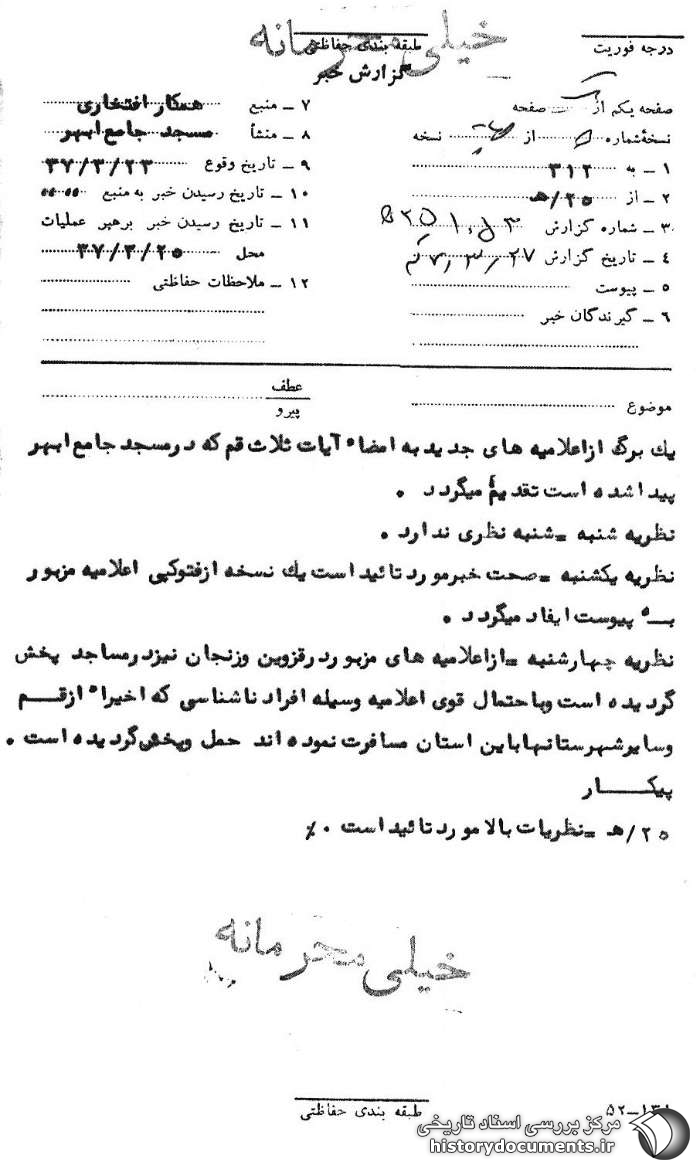 خیلی محرمانه
درجه فوریت
طبقه بندی حفاظتی
گزارش خبر
صفحه یکم از صفحه
نسخهٔ شماره از نسخه
۱ ـ به ۳۱۲
۲ ـ از ۲۵/هـ
۳ ـ شماره گزارش
۴ ـ تاریخ گزارش
۵ ـ پیوست
۶ ـ گیرندگان خبر
۷ ـ منبع همکار افتخاری
۸ ـ منشأ مسجد جامع ابهر
۹ ـ تاریخ وقوع ۳۷/۳/۲۳
۱۰ ـ تاریخ رسیدن خبر به منبع
۱۱ ـ تاریخ رسیدن خبر برهبر عملیات
محل ۳۷/۳/۲۵
۱۲ ـ ملاحظات حفاظتی
موضوع
عطف
پیرو
یک برگ از اعلامیه های جدید به امضاء آیات ثلاث قم که در مسجد جامع ابهر
پیدا شده است تقدیم میگردد .
نظریه شنبه = شنبه نظری ندارد .
نظریه یکشنبه = صحت خبر مورد تائید است یک نسخه از فتوکپی اعلامیه مزبور
به پیوست ایفاد میگردد .
نظریه چهارشنبه = از اعلامیه های مزبور در قزوین و زنجان نیز در مساجد پخش
گردیده است و با حتمال قوی اعلامیه وسیله افراد ناشناسی که اخیراً از قم
و سایر شهرستانها باین استان مسافرت نموده اند حمل و پخش گردیده است .
پیکار
۲۵/هـ = نظریات بالا مورد تائید است .٪
خیلی محرمانه
طبقه بندی حفاظتی
مرکز بررسی اسناد تاریخی
historydocuments.ir